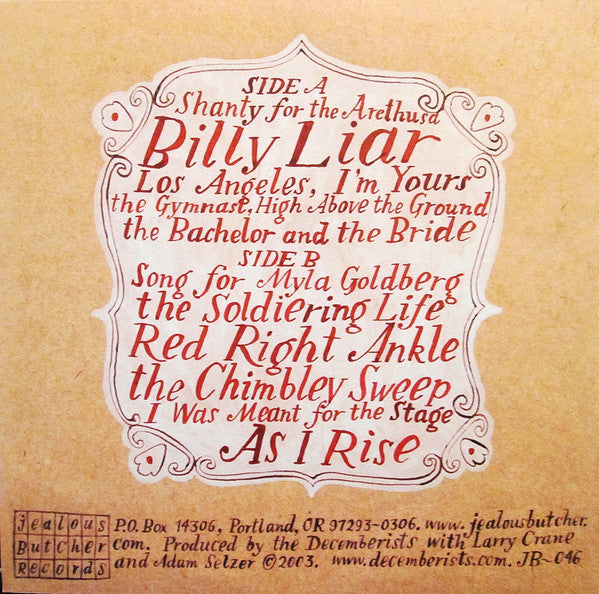 SIDE A
Shanty for the Arethusa
Billy Liar
Los Angeles, I'm Yours
the Gymnast, High Above the Ground
the Bachelor and the Bride
SIDE B
Song for Myla Goldberg
the Soldiering Life
Red Right Ankle
the Chimbley Sweep
I Was Meant for the Stage
As I Rise
Jealous
Butcher
Records
P.O. Box 14306, Portland, OR 97293~0306. www.jealousbutcher.
com. Produced by the Decemberists with Larry Crane
and Adam Selzer ©2003. www.decemberists.com. JB~046